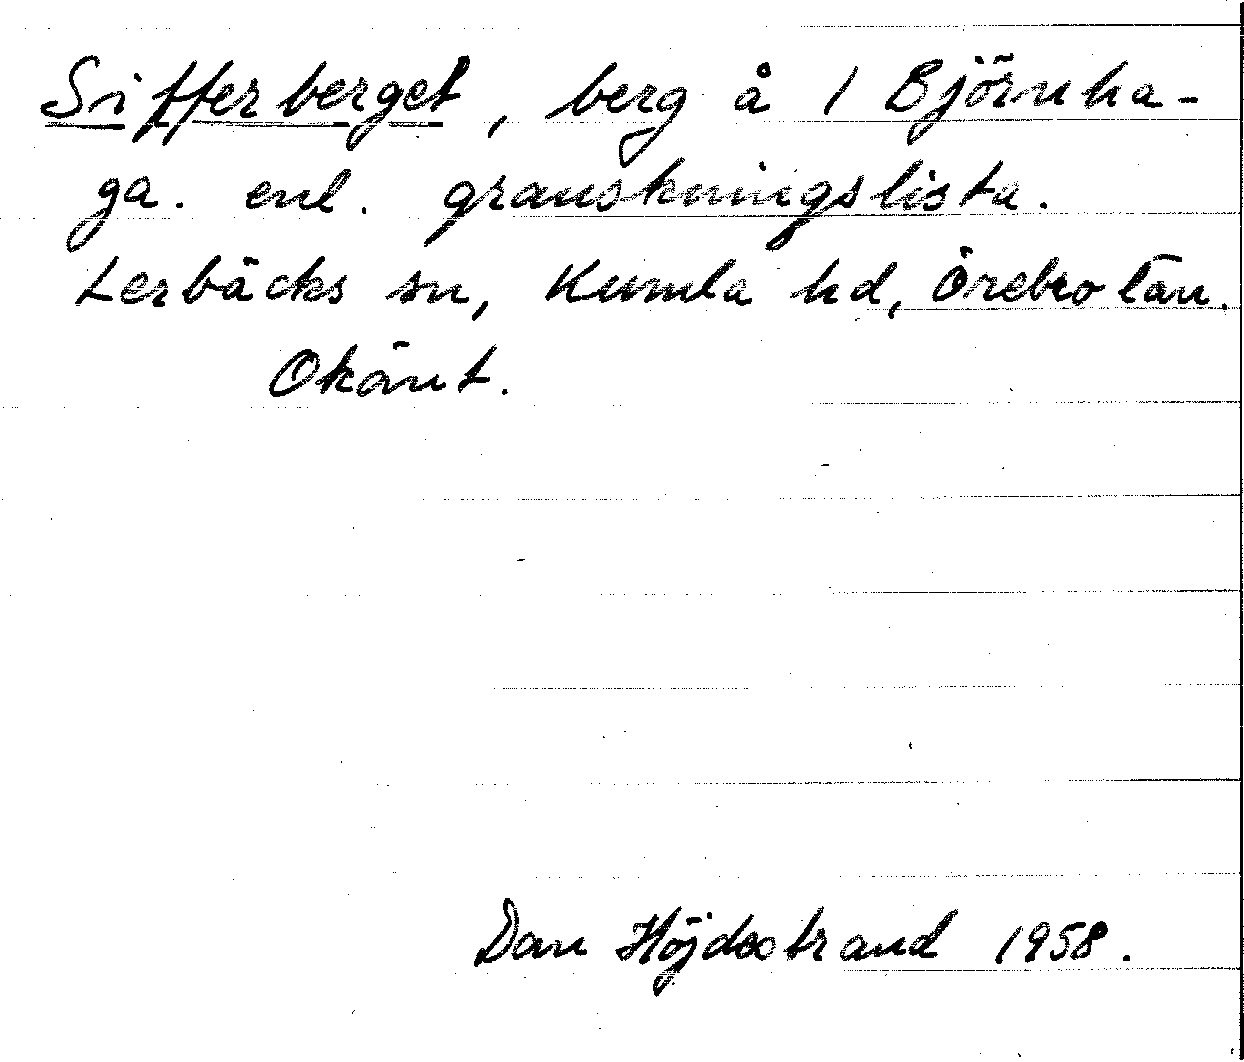 Sifferberget, berg å 1 Björnha-
ga. enl. granskningslista.
Lerbäcks sn, Kumla hd, Örebro län.
Okänt.
Dan Höjdestrand 1958.